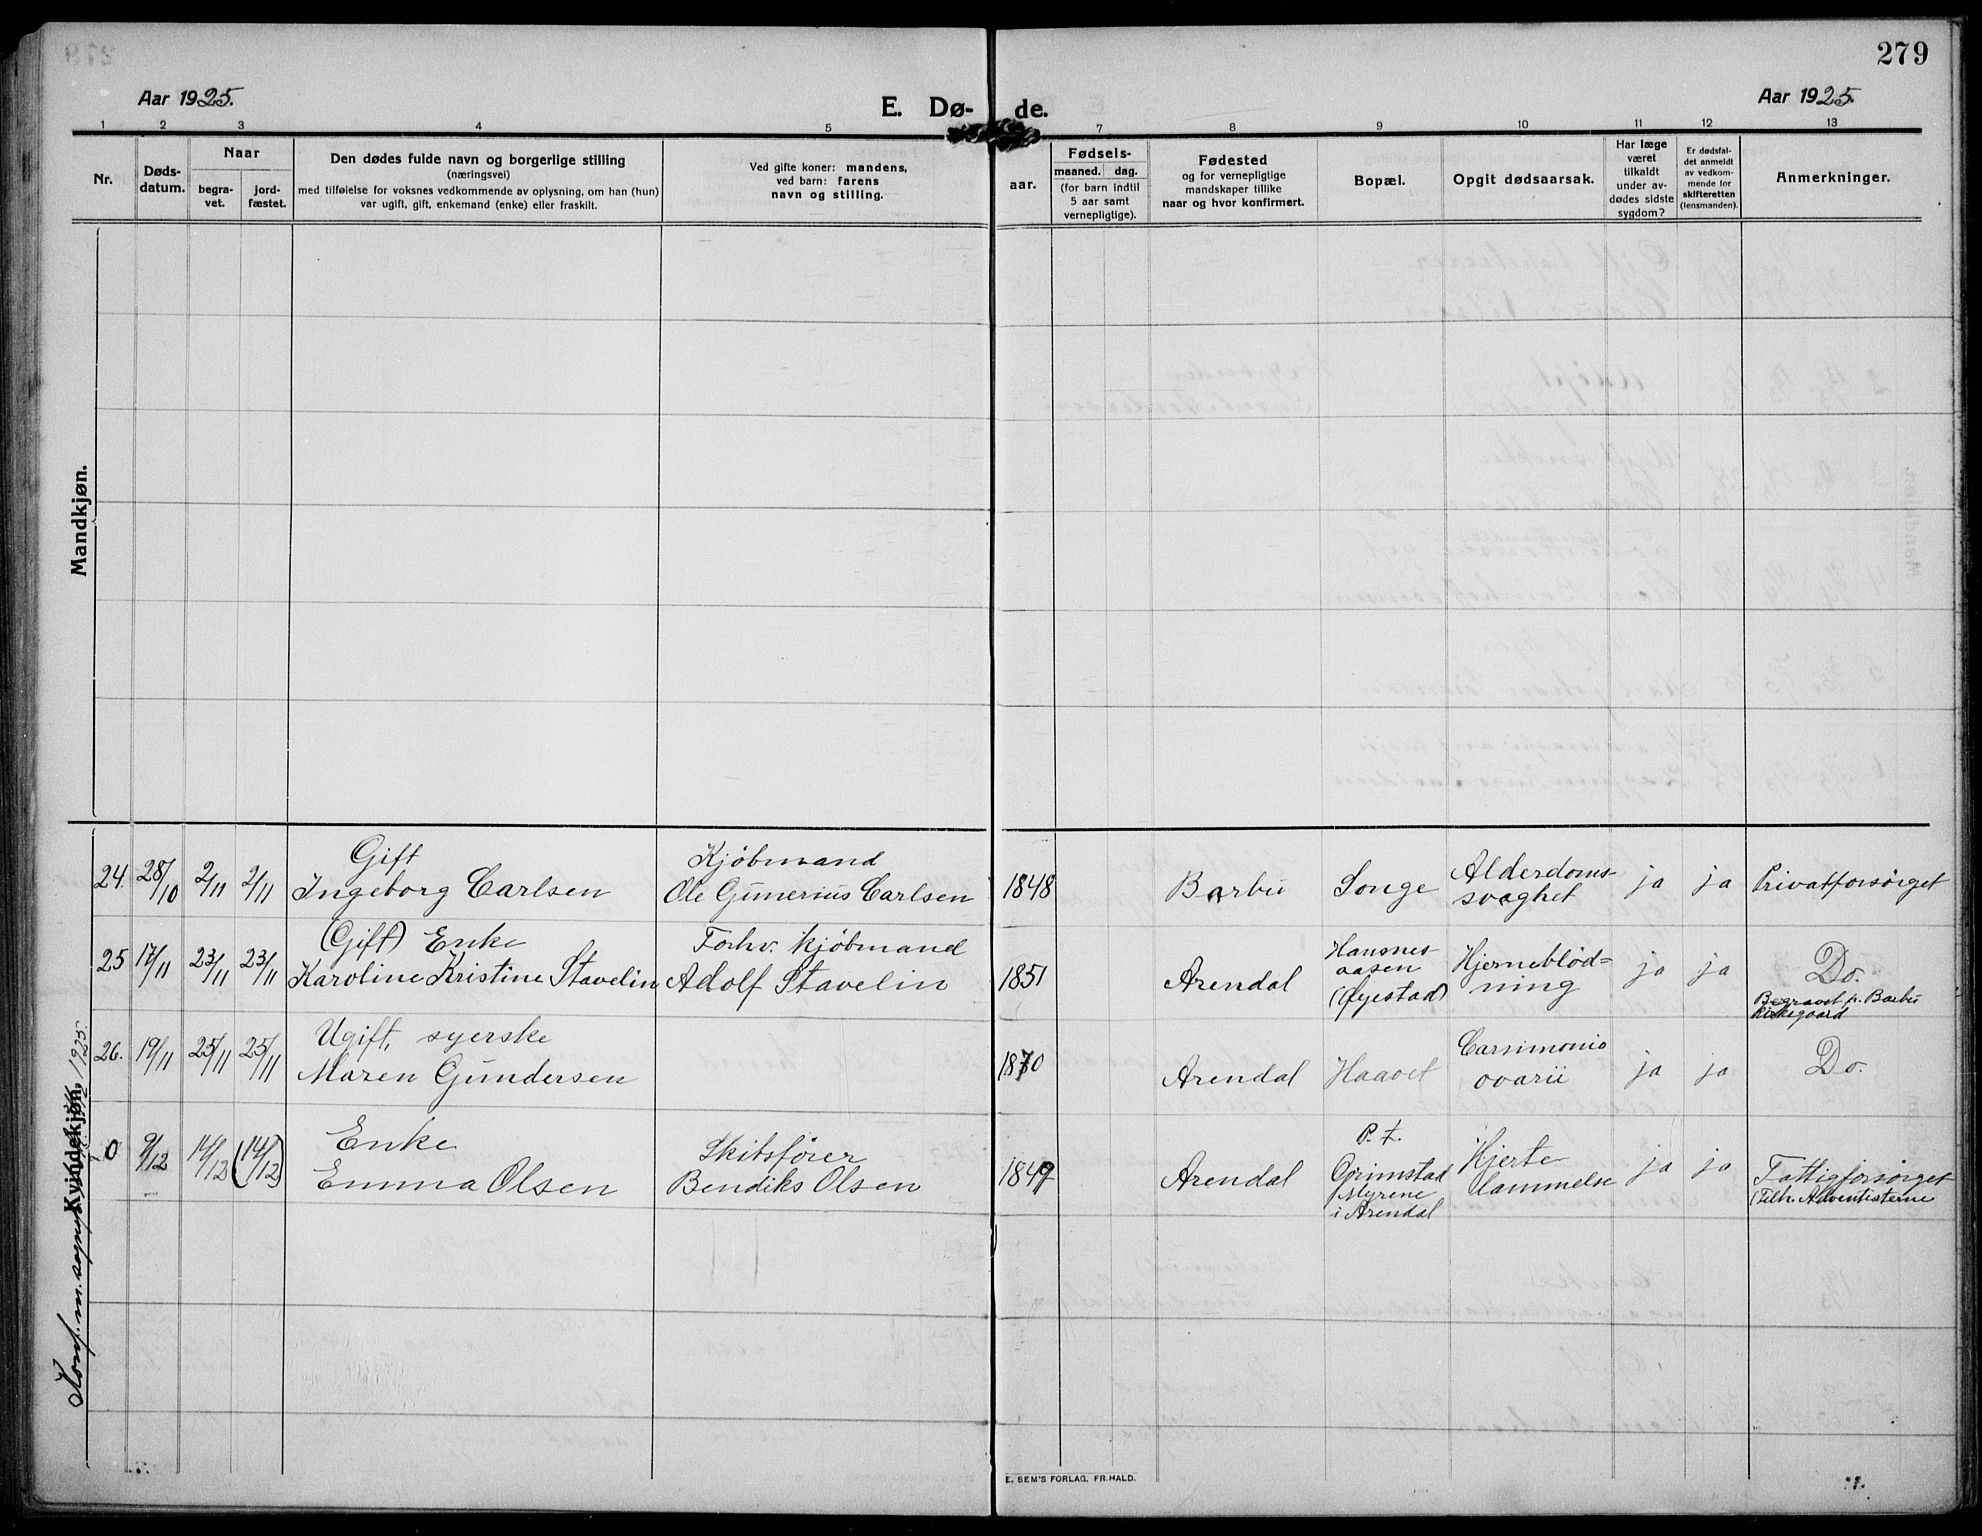 279
Aar 1925.
E. Dø- de.
Aar 1925.
1 2 3 4 5 7 8 9 10 11 12 13
Nr.
Døds-
datum.
Naar
begra-
vet.
jord-
fæstet.
Den dødes fulde navn og borgerlige stilling
(næringsvei)
med tilføielse for voksnes vedkommende av oplysning, om han (hun)
var ugift, gift, enkemand (enke) eller fraskilt.
Ved gifte koner: mandens,
ved barn: farens
navn og stilling.
Fødsels-
aar.
maaned. dag.
(for barn indtil
5 aar samt
vernepligtige).
Fødested
og for vernepligtige
mandskaper tillike
naar og hvor konfirmert.
Bopæl.
Opgit dødsaarsak.
Har læge
været
tilkaldt
under av-
dødes sidste
sygdom?
Er dødsfal-
det anmeldt
av vedkom-
mende for
skifteretten
(lensmanden).
Anmerkninger.
Mandkjøn.
Kvindekjøn.
Konf. m. sogne 1925.
24. 28/10 2/11 2/11 Gift
Ingeborg Carlsen
Kjöbmand
Ole Gunerius Carlsen
1848 Barbu Songe Alderdoms-
svaghet
ja ja Privatforsörget
25 17/11 23/11 23/11 (Gift) Enke
Karoline Kristine Stavelin
Forhv. kjöbmand
Adolf Stavelin
1851 Arendal Hansnes-
aasen
(Øyestad)
Hjerneblöd=
ning
ja ja Do.
Begravet p. Barbu
kirkegaard
26. 19/11 25/11 25/11 Ugift, syerske
Maren Gundersen
1870 Arendal Haavet Carsimonia
ovarii
ja ja Do.
0 9/12 14/12 (14/12) Enke
Emma Olsen
Skibsförer
Bendiks Olsen
1849 Arendal P. t.
Grimstad
Myrene
i Arendal
Hjerte
lammelse
ja ja Fattigforsörget
(Tilh. Adventisterne
E. SEM'S FORLAG, FR.HALD.